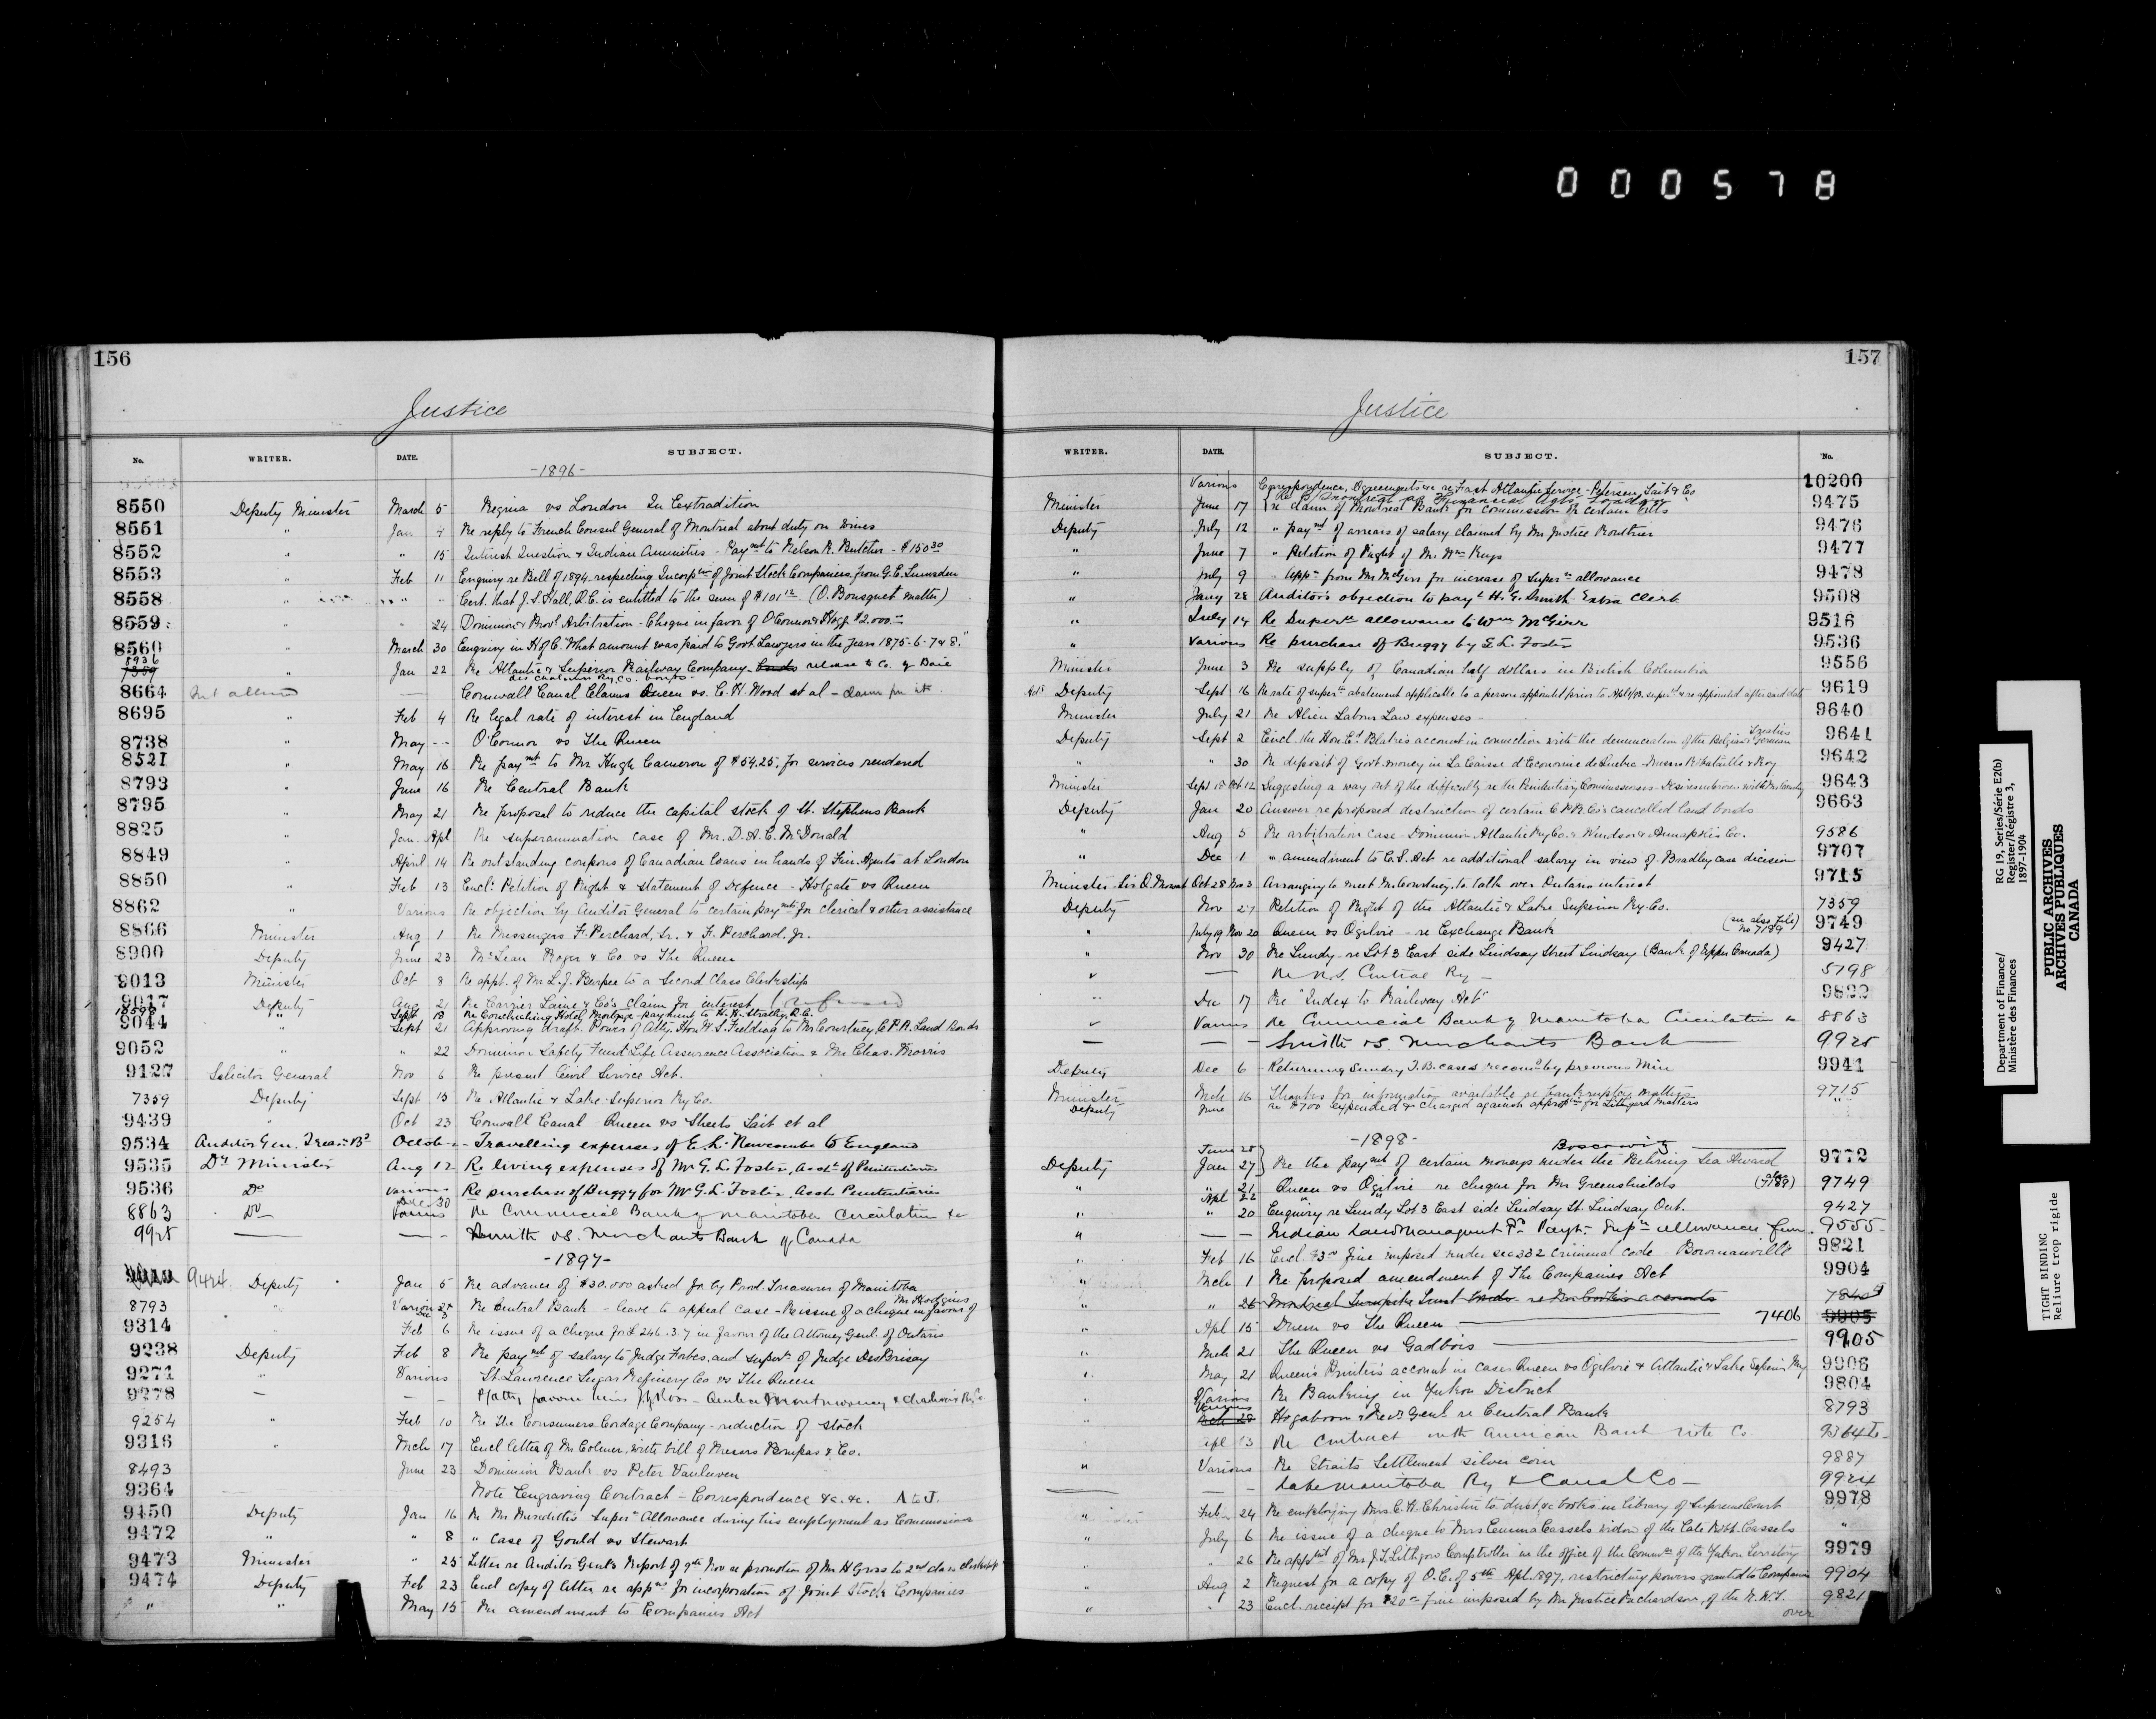 000578
156
Justice
No. WRITER. DATE. SUBJECT.
-1896-
8550 Deputy Minister March 5 Regina vs London In Extradition
8551 " Jan 4 Re reply to French Consul General of Montreal about duty on wines
8552 " " 15 Interest Question & Indian Annuities - Paymt to Nelson R. Butcher - $150 30
8553 " Feb 11 Enquiry re Bill of 1894 respecting Incorpn of Joint Stock Companies from G. E. Lumsden
8558 " " " Cert. that J. S. Hall, Q.C. is entitled to the sum of $101 12 (O. Bousquet matter)
8559 " " 24 Dominion & Provl Arbitration - Cheque in favor of O'Connor & Hogg $2,000.
8560 " March 30 Enquiry in H of C. "What amount was paid to Govt Lawyers in the years 1875-6-7 & 8."
8936 7359 " Jan 22 Re Atlantic & Superior Railway Company - bonds release to Co. of Baie
des Chaleurs Ry. Co. bonds
8664 " — Cornwall Canal Claims Queen vs. C. H. Wood et al - claim for
8695 " Feb 4 Re legal rate of interest in England
8738 " May -- O'Connor vs The Queen
8521 " May 16 Re paymt to Mr Hugh Cameron of $54.25, for services rendered
8793 " June 16 Re Central Bank
8795 " May 21 Re proposal to reduce the capital stock of St. Stephens Bank
8825 " Jan. Apl Re superannuation case of Mr. D. A. C. McDonald
8849 " April 14 Re outstanding coupons of Canadian Loans in hands of Fin. Agents at London
8850 " Feb 13 Encl. Petition of Right & statement of Defence - Holgate vs Queen
8862 " Various Re objection by Auditor General to certain paymts for clerical & other assistance
8866 Minister Aug 1 Re Messengers F. Perchard, Sr. & F. Perchard, Jr.
8900 Deputy June 23 McLean Roger & Co. vs The Queen
9013 Minister Oct 8 Re appt. of Mr L. J. Burpee to a Second Class Clerkship
9017 Deputy Aug 21 Re Carrier Laine & Co's claim for interest
" Sept 18 Re Couchiching Hotel Mortgage - payment to H. H. Strathy, Q.C.
9044 " Sept 21 Approving draft Power of Atty Hon W. S. Fielding to Mr Courtney C.P.R. Land Bonds
9052 " " 22 Dominion Safety Fund Life Assurance Association & Mr Chas. Morris
9127 Solicitor General Nov 6 Re present Civil Service Act.
7359 Deputy Sept 15 Re Atlantic & Lake Superior Ry Co.
9439 " Oct 23 Cornwall Canal Queen vs Sheets Tait et al
9534 Auditor Gen. Treas. Bd Travelling expenses of E. L. Newcombe to England
9535 Dy Minister Aug 12 Re living expenses of Mr G. L. Foster, Acct of Penitentiaries
9536 Do Various Re purchase of Buggy for Mr G. L. Foster, Acct Penitentiaries
8863 Do Dec 30 Various Re Commercial Bank of Manitoba Circulation &c
9925 — — - Smith vs. Merchants Bank of Canada
-1897-
9424 Deputy Jan 5 Re advance of $30.000 asked for by Prov. Treasurer of Manitoba
Mr Hodgins
8793 " Various Re Central Bank - leave to appeal case - Reissue of a cheque in favour of
9314 Feb 6 Re issue of a cheque for £246.3.7 in favour of the Attorney Genl. of Ontario
9238 Deputy Feb 8 Re paymt of salary to Judge Forbes, and superr. of Judge DesBrisay
9271 " Various St. Lawrence Sugar Refinery Co vs The Queen
9278 — —
9254 " Feb 10 Re the Consumers Cordage Company - reduction of stock
9316 " Mch 17 Encl letter of Mr Colmer, with bill of Messrs Bompas & Co.
8493 June 23 Dominion Bank vs Peter Vanluven
9364 Note Engraving Contract - Correspondence &c. &c. A to J.
9450 Deputy Jan 16 Re Mr Meredith's Supern Allowance during his employment as Commissioner
9472 " " 8 " Case of Gould vs Stewart
9473 Minister " 25 Letter re Auditor Genl's Report of 9th Nov re promotion of Mr H Gross to 2nd class clerkship
9474 Deputy Feb 23 Encl copy of letter re appn for incorporation of Joint Stock Companies
" " May 15 Re amendment to Companies Act
157
Justice
WRITER. DATE. SUBJECT. No.
Various Correspondence, Agreements re re Fast Atlantic Service - Petersen, Tait & Co 10200
Minister June 17 re claim of Montreal Bank for commission 9475
Deputy July 12 " paymt of arrears of salary claimed by Mr Justice Routhier 9476
" June 7 " Petition of Right of M. Wm Keys 9477
" July 9 " Appn from Mr McGirr for increase of Supern allowance 9478
" Jany 28 Auditor's objection to payt H. G. Smith Extra Clerk 9508
" July 14 Re Supern allowance to Wm McGirr 9516
" Various Re purchase of Buggy by G. L. Foster 9536
Minister June 3 Re supply of Canadian half dollars in British Columbia 9556
Deputy Sept 16 Re rate of supern abatement applicable to a person appointed prior to 9619
Minister July 21 Re Alien Labour Law expenses 9640
Treaties
Deputy Sept 2 Encl. the Hon. Ed Blake's account in connection with the denunciation of the Belgian & German 9641
" " 30 Re deposit of Govt money in La Caisse d'Economie de Quebec - Messrs Rbitaille & Roy 9642
Minister Sept 18 Oct 12 Suggesting a way out of the difficulty re the Penitentiary Commissioners 9643
Deputy Jan 20 Answer re proposed destruction of certain C.P.R. Co's cancelled land bonds 9663
" Aug 5 Re arbitration case - Dominion Atlantic Ry Co. & Windsor & Annapolis Co. 9586
" Dec 1 " amendment to C. S. Act re additional salary in view of Bradley case decision 9707
Minister Sir O. Mowat Oct 28 Nov 3 Arranging to meet Mr Courtney to talk over Ontario interest 9715
Deputy Nov 27 Petition of Right of the Atlantic & Lake Superior Ry. Co. 7359
(see also File No 7189)
" July 19 Nov 20 Queen vs Ogilvie - re Exchange Bank 9749
" Nov 30 Re Lundy - re Lot 3 East side Lindsay Street Lindsay (Bank of Upper Canada) 9427
" — Re N. S. Central Ry - 5198
" Dec 17 Re "Index to Railway Act" 9822
" Various Re Commercial Bank of Manitoba Circulation &c 8863
— — - Smith vs. Merchants Bank 9925
Deputy Dec 6 Returning Sundry T. B. cases recomd by previous Min 9941
Minister Mch 16 Thanks for information available re bankruptcy matters 9715
Deputy June re $700 expended & charged against appropn for Litigated matters "
-1898-
Boscowitz
Deputy June 28 Jan 27 Re the paymt of certain moneys under the Behring Sea Award 9772
" " 21 Apl 22 Queen vs Ogilvie re cheque for Mr Greenshields (also 7189) 9749
" " 20 Enquiry re Lundy Lot 3 East side Lindsay St. Lindsay Ont. 9427
" — - Indian Land Management Fd Payt - Supn allowance 9555
" Feb 16 Encl. $3 fine imposed under sec 332 Criminal code - Bowmanville 9821
" Mch 1 Re proposed amendment of The Companies Act 9904
" " 26 Montreal Turnpike Trust Bonds re
" Apl 15 Drum vs The Queen 7406 9905
" Mch 21 The Queen vs Gadbois 9905
" May 21 Queen's Printer's account in cases Queen vs Ogilvie & Atlantic & Lake Superior Ry 9906
" Various Re Banking in Yukon District 9804
" Various Mch 28 Hogaboom & Recvr Genl. re Central Bank 8793
" Apl 13 Re Contract with American Bank Note Co. 9364
" Various Re Straits Settlement silver coin 9887
— — - Lake Manitoba Ry & Canal Co - 9924
" Feb 24 Re employing Mrs. C. H. Christin to dust &c books in Library of Supreme Court 9978
" July 6 Re issue of a cheque to Mrs Emma Cassels widow of the late Robt. Cassels "
" " 26 Re appmt of Mr J. T. Lithgow Comptroller in the office of the Commr of the Yukon Territory 9979
" Aug 2 Request for a copy of O.C. of 5th Apl. 1897, restricting powers granted to Companies 9904
" " 23 Encl. receipt for $20 fine imposed by Mr Justice Richardson, of the N.W.T. 9821
over
Department of Finance/
Ministère des Finances
RG 19, Series/Série E2(b)
Register/Régistre 3,
1897-1904
PUBLIC ARCHIVES
ARCHIVES PUBLIQUES
CANADA
TIGHT BINDING
Reliure trop rigide